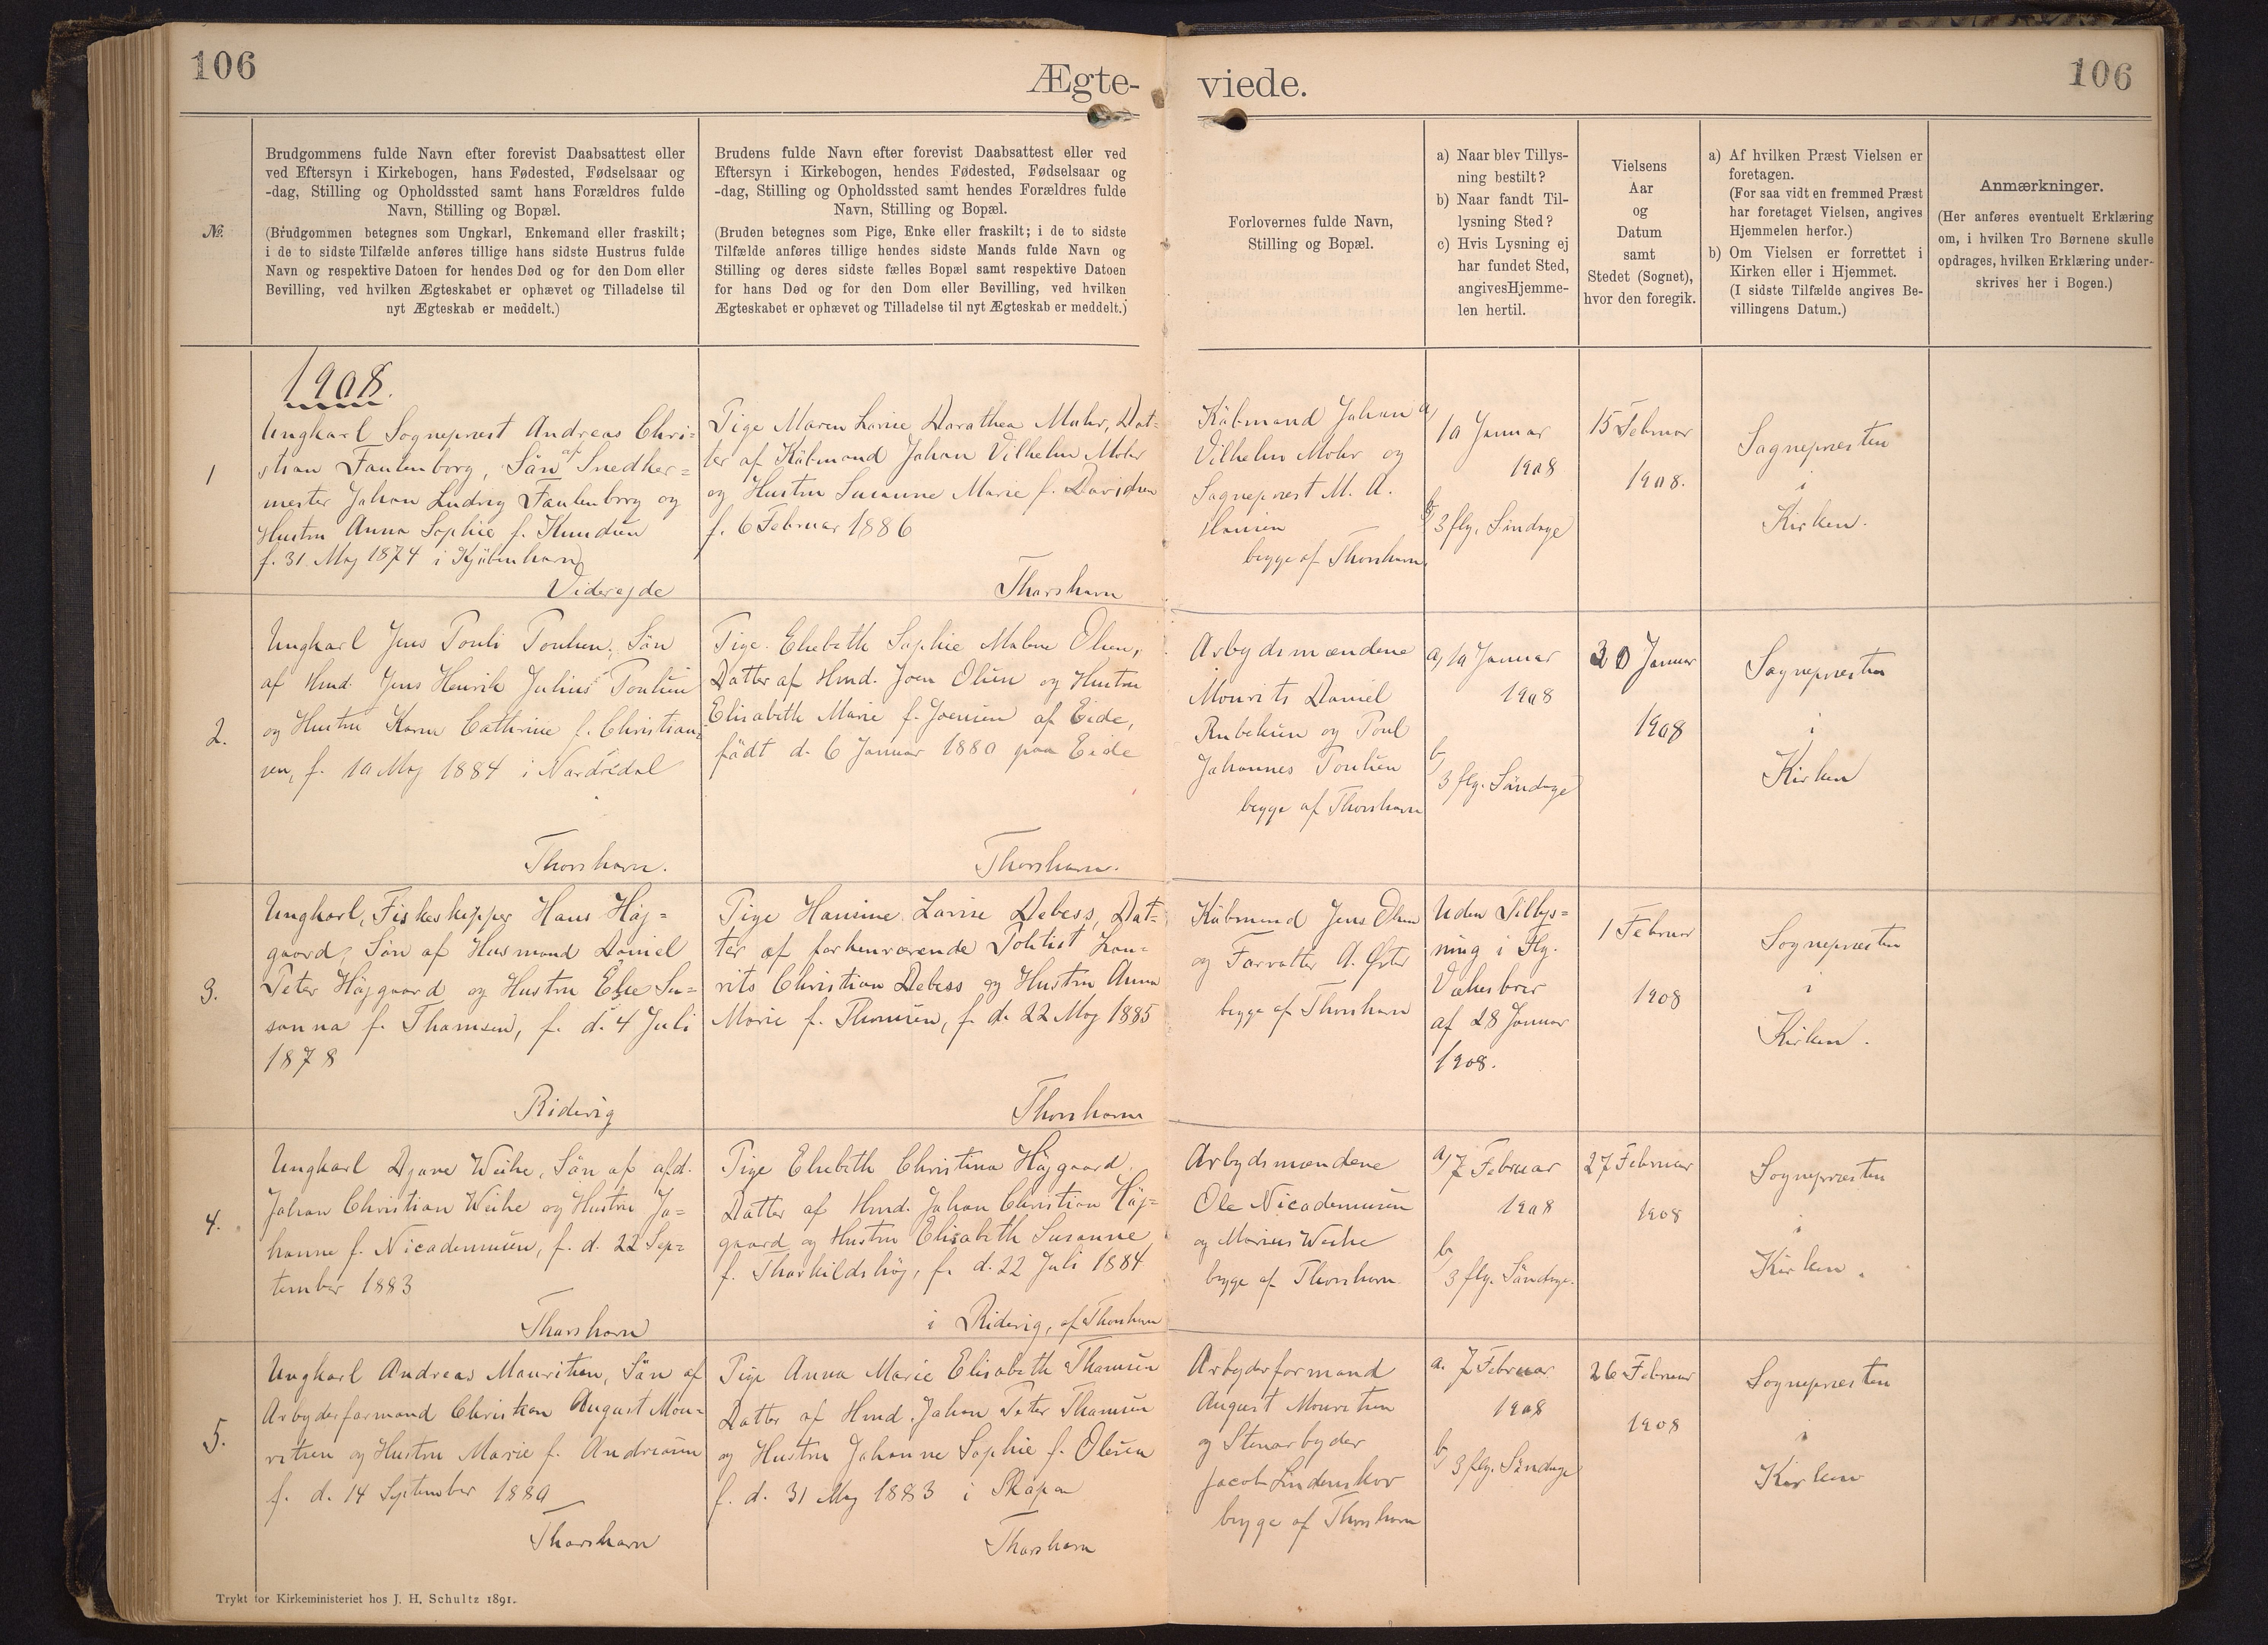 106
Ægte-
viede.
106
№.
Brudgommens fulde Navn efter forevist Daabsattest eller
ved Eftersyn i Kirkebogen, hans Fødested, Fødselsaar og
-dag, Stilling og Opholdssted samt hans Forældres fulde
Navn, Stilling og Bopæl.
(Brudgommen betegnes som Ungkarl, Enkemand eller fraskilt;
i de to sidste Tilfælde anføres tillige hans sidste Hustrus fulde
Navn og respektive Datoen for hendes Død og for den Dom eller
Bevilling, ved hvilken Ægteskabet er ophævet og Tilladelse til
nyt Ægteskab er meddelt.)
Brudens fulde Navn efter forevist Daabsattest eller ved
Eftersyn i Kirkebogen, hendes Fødested, Fødselsaar og
-dag, Stilling og Opholdssted samt hendes Forældres fulde
Navn, Stilling og Bopæl.
(Bruden betegnes som Pige, Enke eller fraskilt; i de to sidste
Tilfælde anføres tillige hendes sidste Mands fulde Navn og
Stilling og deres sidste fælles Bopæl samt respektive Datoen
for hans Død og for den Dom eller Bevilling, ved hvilken
Ægteskabet er ophævet og Tilladelse til nyt Ægteskab er meddelt.)
Forlovernes fulde Navn,
Stilling og Bopæl.
a) Naar blev Tillys-
ning bestilt?
b) Naar fandt Til-
lysning Sted?
c) Hvis Lysning ej
har fundet Sted,
angives Hjemme-
len hertil.
Vielsens
Aar
og
Datum
samt
Stedet (Sognet),
hvor den foregik.
a) Af hvilken Præst Vielsen er
foretagen.
(For saa vidt en fremmed Præst
har foretaget Vielsen, angives
Hjemmelen herfor.)
b) Om Vielsen er forrettet i
Kirken eller i Hjemmet.
(I sidste Tilfælde angives Be-
villingens Datum.)
Anmærkninger.
(Her anføres eventuelt Erklæring
om, i hvilken Tro Børnene skulle
opdrages, hvilken Erklæring under-
skrives her i Bogen.)
1908.
1
Ungkarl Sognepræst Andreas Chri-
stian Fautenborg, Sön af Snedker-
mester Johan Ludvig Fautenborg og
Hustru Anna Sophie f. Knudsen
f. 31. Maj 1874 i Kjöbenhavn
Viderejde
Pige Maren Lovise Dorathea Mohr, Dat-
ter af Köbmand Johan Vilhelm Mohr
og Hustru Susanne Marie f. Davidsen
f. 6 Februar 1886
Thorshavn
Köbmand Johan
Vilhelm Mohr og
Sognepræst M. A.
Hansen
begge af Thorshavn
a) 10 Januar
1908
b) 3 flg. Söndage
15 Februar
1908.
Sognepræsten
i
Kirken.
2.
Ungkarl Jens Pouli Poulsen, Sön
af Hmd. Jens Henrik Julius Poulsen
og Hustru Karen Cathrine f. Christian-
sen, f. 10 Maj 1884 i Nordredal
Thorshavn.
Pige Elsebeth Sophie Malene Olsen,
Datter af Hmd. Joen Olsen og Hustru
Elisabeth Marie f. Joensen af Eide,
födt d. 6 Januar 1880 paa Eide
Thorshavn.
Arbejdsmændene
Mourits Daniel
Rubeksen og Poul
Johannes Poulsen
begge af Thorshavn
a) 10 Januar
1908
b)
3 flg. Söndage
30 Januar
1908
Sognepræsten
i
Kirken
3.
Ungkarl, Fiskeskipper Hans Höj-
gaard, Sön af Husmand Daniel
Peter Höjgaard og Hustru Else Su-
sanna f. Thomsen, f. d. 4 Juli
1878
Ridevig
Pige Hansine Lovise Debess, Dat-
ter af forhenværende Politist Lau-
rits Christian Debess og Hustru Anna
Marie f. Thomsen, f. d. 22 Maj 1885
Thorshavn
Köbmand Jens Olsen
og Forvalter A. Öster
begge af Thorshavn
Uden Tillys-
ning i Flg.
Vielsesbrev
af 28 Januar
1908.
1 Februar
1908
Sognepræsten
i
Kirken.
4.
Ungkarl Djone Weihe, Sön af afd.
Johan Christian Weihe og Hustru Jo-
hanne f. Nicodemusen, f. d. 22 Sep-
tember 1883
Thorshavn
Pige Elsebeth Christina Höjgaard
Datter af Hmd. Johan Christian Höj-
gaard og Hustru Elisabeth Susanne
f. Thorkildshöj, f. d. 22 Juli 1884
i Ridevig, af Thorshavn
Arbejdsmændene
Ole Nicodemusen
og Marius Weihe
begge af Thorshavn
a) 7 Februar
1908
b)
3 flg. Söndage.
27 Februar
1908
Sognepræsten
i
Kirken.
5.
Ungkarl Andreas Mouritsen, Sön af
Arbejderformand Christian August Mou-
ritsen og Hustru Marie f. Andreasen
f. d. 14 September 1880
Thorshavn
Pige Anna Marie Elisabeth Thomsen
Datter af Hmd. Johan Peter Thomsen
og Hustru Johanne Sophie f. Olesen
f. d. 31 Maj 1883 i Skopen
Thorshavn
Arbejderformand
August Mouritsen
og Stenarbejder
Jacob Lindenskov
begge af Thorshavn
a. 7 Februar
1908
b) 3 flg. Söndage
26 Februar
1908
Sognepræsten
i
Kirken
Trykt for Kirkeministeriet hos J. H. Schultz 1891.